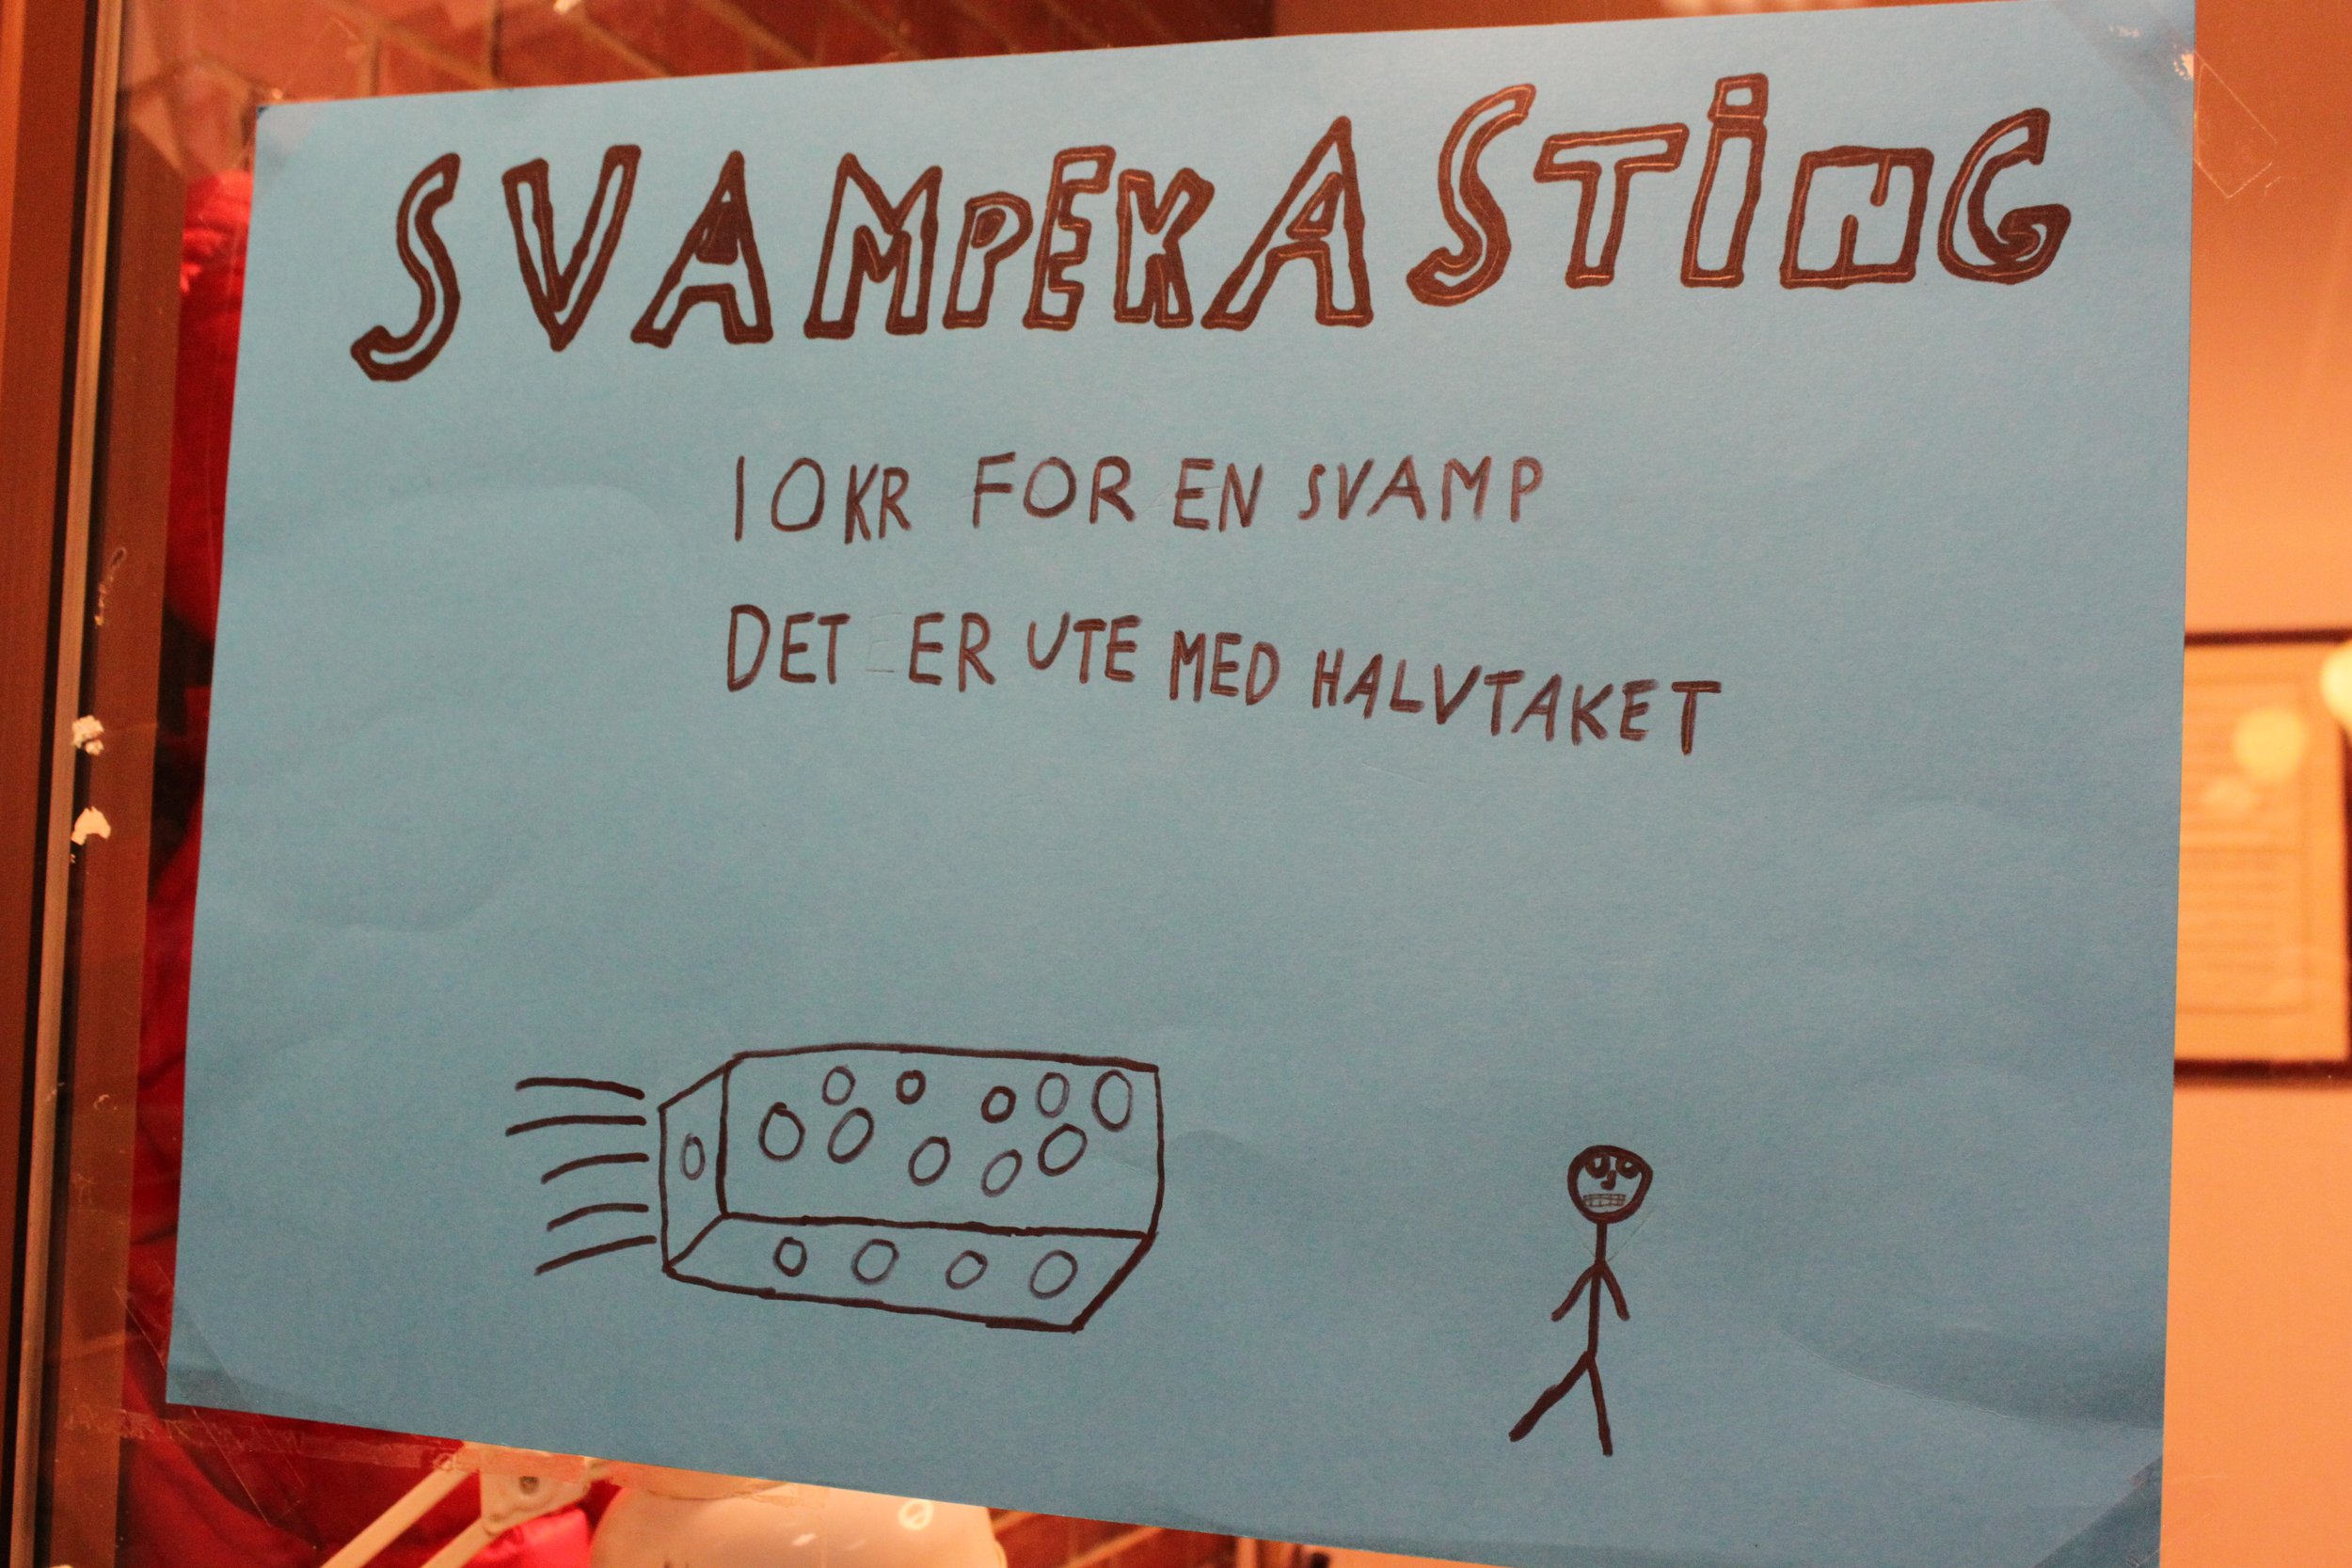 SVAMPEKASTING
10 KR FOR EN SVAMP
DET ER UTE MED HALVTAKET